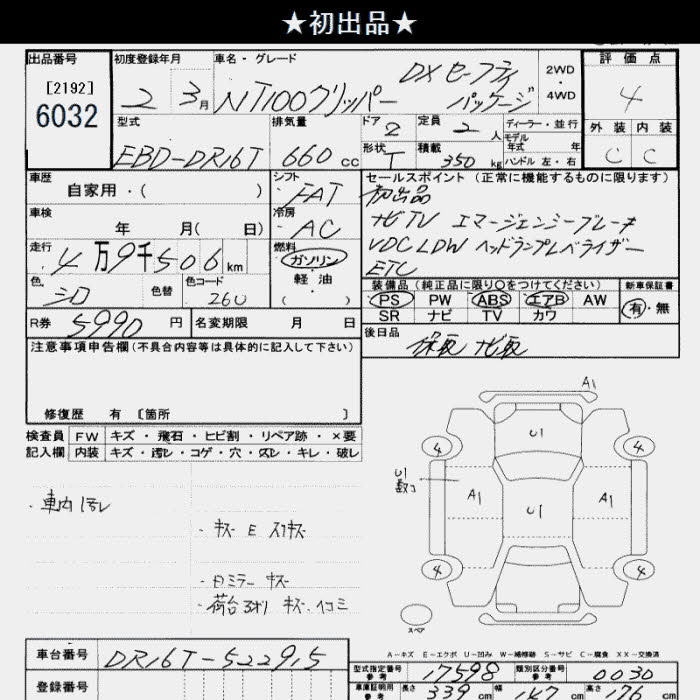 ★初出品★
出品番号
[2192]
6032
初度登録年月
2 3月
車名・グレード
NT100クリッパー
DX セーフティ
パッケージ
2WD
・
4WD
評価点
4
外装 内装
C C
型式
EBD-DR16T
排気量
660 cc
ドア 2
形状 T
定員 2 人
積載 350 kg
ディーラー・並行
モデル
年式 年
ハンドル 左・右
車歴
自家用・( )
車検
年 月( 日)
走行
4万9千506km
色 シロ
色替
色コード 26U
R券 5990 円
名変期限 月 日
シフト
FAT
冷房
AC
燃料
ガソリン
・
軽油
( )
セールスポイント(正常に機能するものに限ります)
初出品
ナビTV エマージェンシーブレーキ
VDC LDW ヘッドランプレベライザー
ETC
装備品(純正品に限り○をつけてください)
PS PW ABS エアB AW
SR ナビ TV カワ
新車保証書
有・無
後日品
保取 ナビ取
注意事項申告欄(不具合内容等は具体的に記入して下さい)
修復歴 有 〔箇所 〕
検査員
記入欄
FW キズ・飛石・ヒビ割・リペア跡・×要
内装 キズ・汚レ・コゲ・穴・スレ・キレ・破レ
・車内汚レ
・キズ E スリキズ
・白ミラー キズ
・荷台アオリ キズ、凹コミ
A1
U1
4 4
U1
数コ
A1 U1 A1
4 4
スペア
A-キズ E-エクボ U-凹み W-補修跡 S-サビ C-腐食 XX-交換済
車台番号
DR16T-522915
登録番号
型式指定番号
参考
17598
類別区分番号
参考
0030
車庫証明用
参考
長さ 339 cm 幅 147 cm 高さ 176 cm